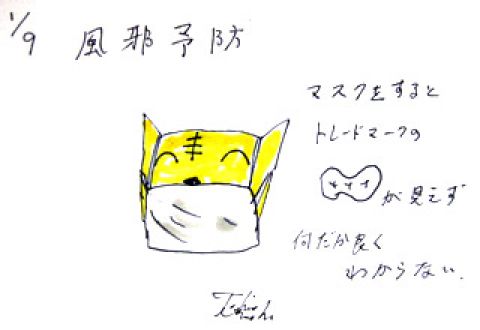 1/9 風邪予防
マスクをすると
トレードマークの
が見えず
何だか良く
わからない。